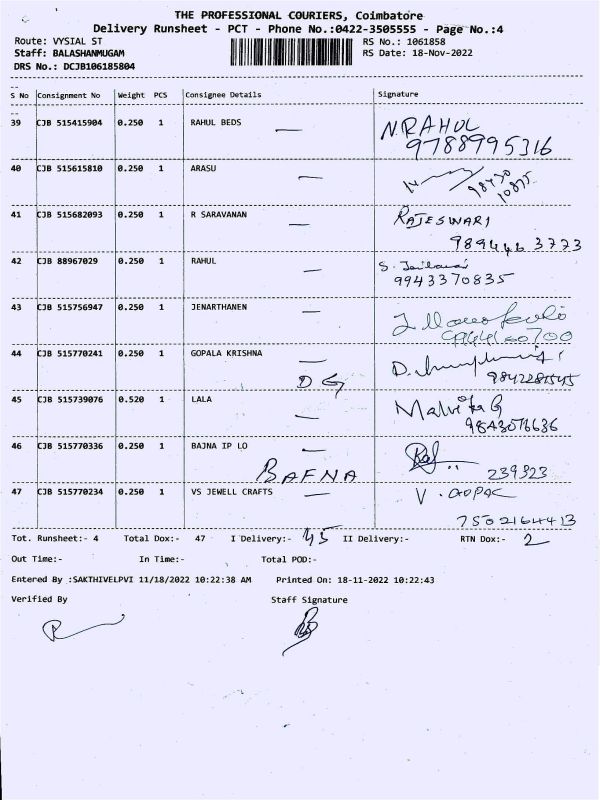 THE PROFESSIONAL COURIERS, Coimbatore
Delivery Runsheet - PCT - Phone No.:0422-3505555 - Page No.:4
Route: VYSIAL ST RS No.: 1061858
Staff: BALASHANMUGAM RS Date: 18-Nov-2022
DRS No.: DCJB106185804
S No Consignment No Weight PCS Consignee Details Signature
39 CJB 515415904 0.250 1 RAHUL BEDS N.RAHUL
9788995316
40 CJB 515615810 0.250 1 ARASU
41 CJB 515682093 0.250 1 R SARAVANAN RAJESWARI
989446 3773
42 CJB 88967029 0.250 1 RAHUL S.
9943370835
43 CJB 515756947 0.250 1 JENARTHANEN
44 CJB 515770241 0.250 1 GOPALA KRISHNA
DG 9842281545
45 CJB 515739076 0.520 1 LALA Malvika G
9843076636
46 CJB 515770336 0.250 1 BAJNA IP LO Raj
BAFNA 239323
47 CJB 515770234 0.250 1 VS JEWELL CRAFTS V. GOPAL
7502164413
Tot. Runsheet:- 4 Total Dox:- 47 I Delivery:- 45 II Delivery:- RTN Dox:- 2
Out Time:- In Time:- Total POD:-
Entered By :SAKTHIVELPVI 11/18/2022 10:22:38 AM Printed On: 18-11-2022 10:22:43
Verified By Staff Signature